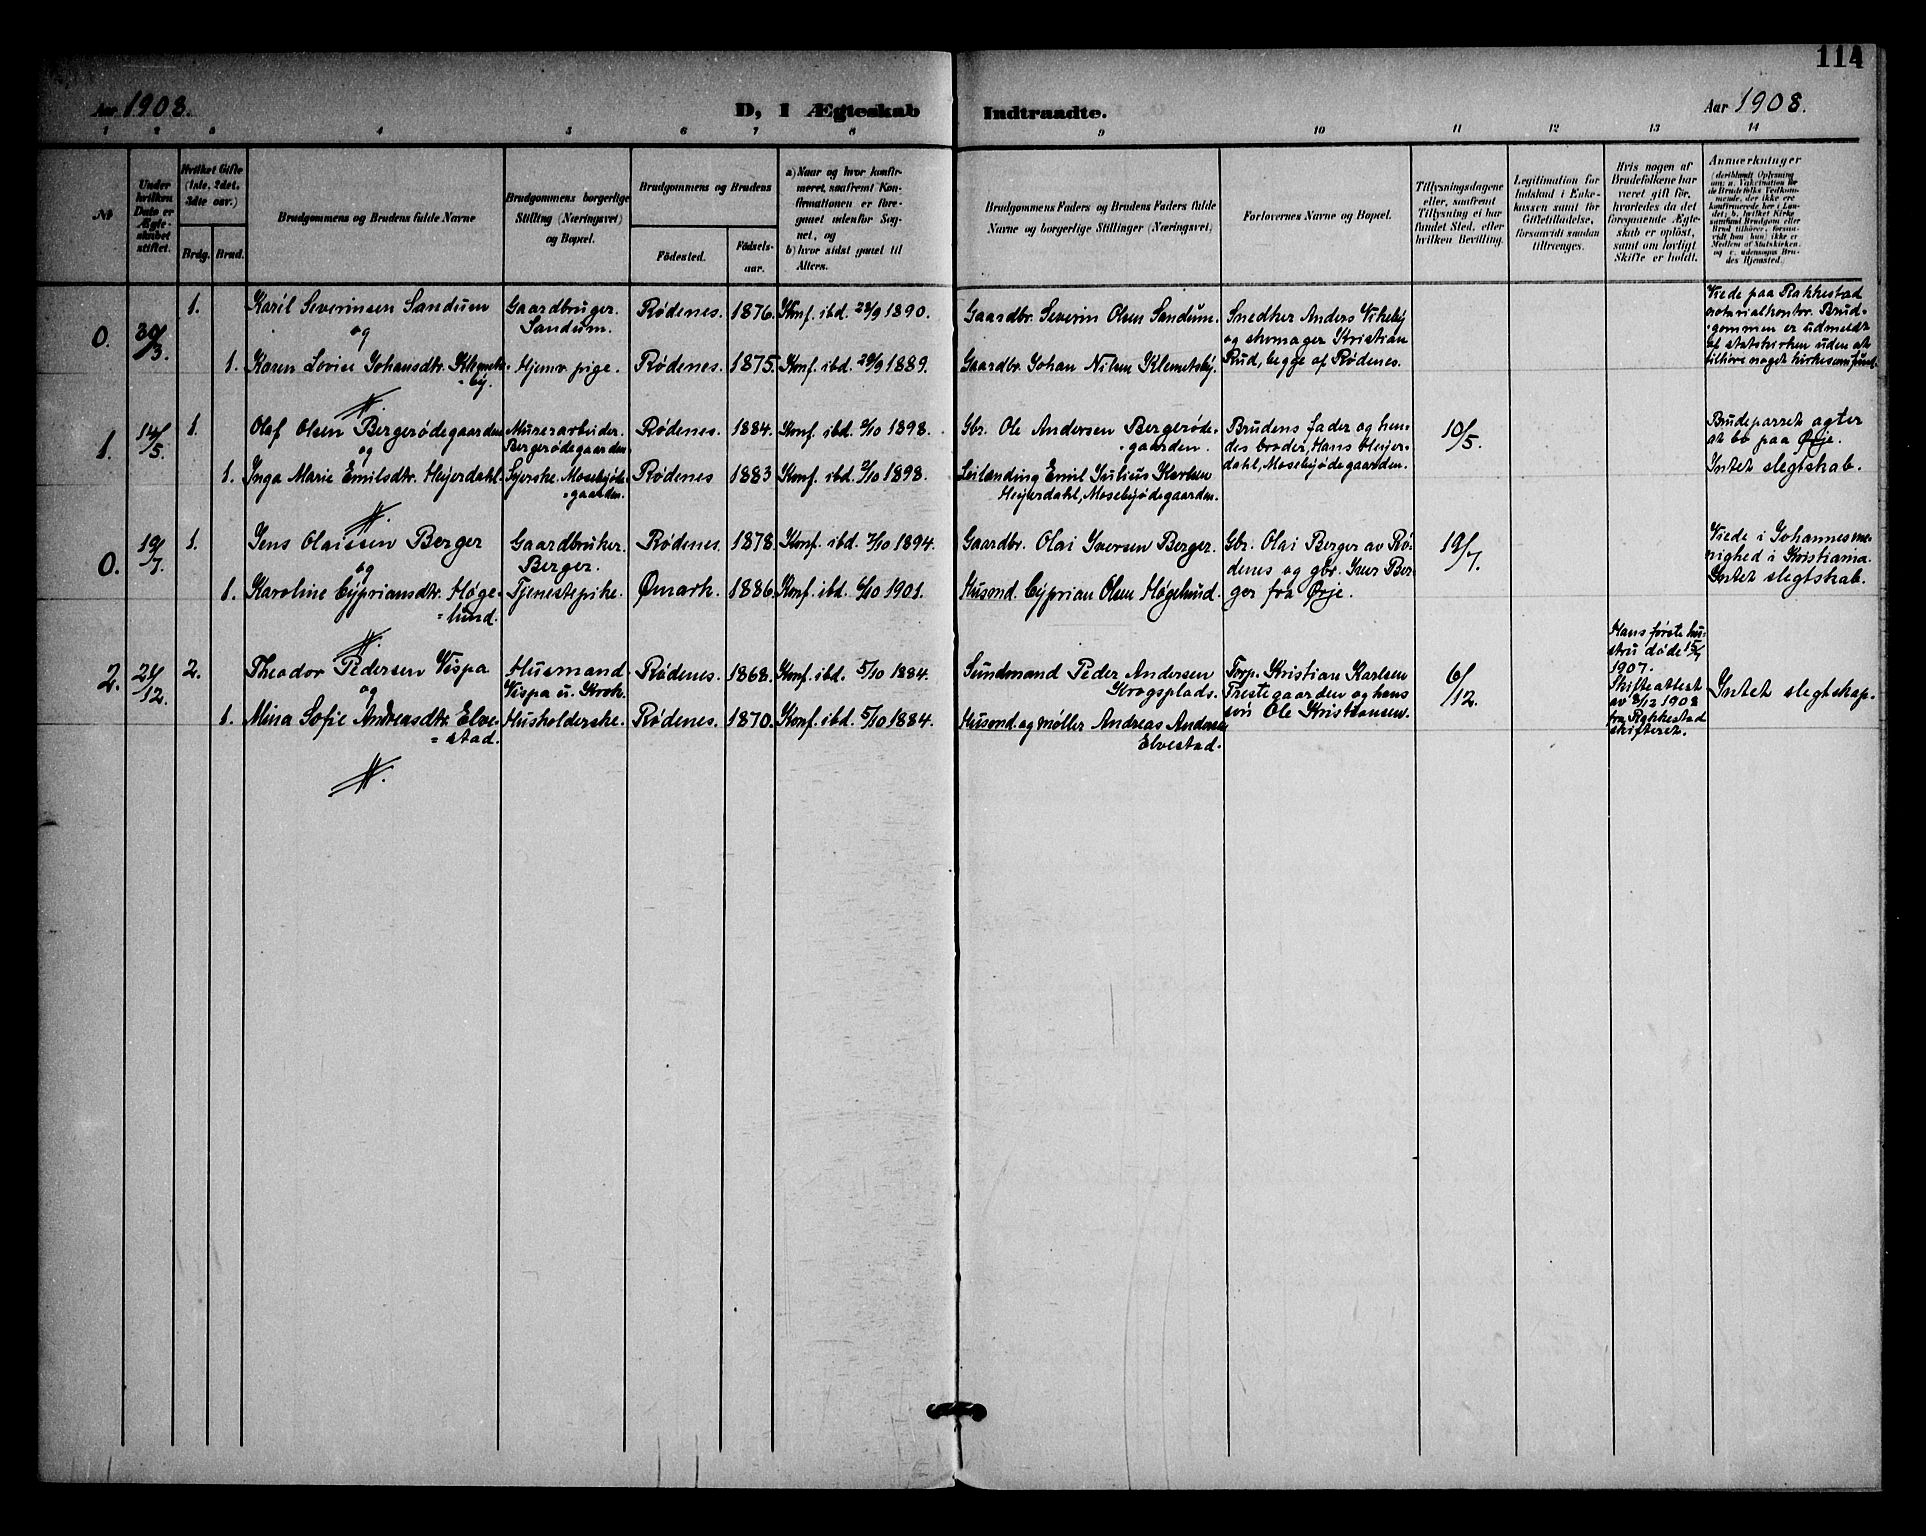 114
Aar 1908.
D, 1 Ægteskab
Indtraadte.
Aar 1908.
1 2 3 4 5 6 7 8 9 10 11 12 13 14
№
Under hvilken Dato er Ægteskabet stiftet.
Hvilket Gifte (1ste, 2det, 3dte osv.)
Brdg. Brud.
Brudgommens og Brudens fulde Navne
Brudgommens borgerlige Stilling (Næringsvei) og Bopæl.
Brudgommens og Brudens
Fødested.
Fødselsaar.
a) Naar og hvor konfirmeret, saafremt Konfirmationen er foregaaet udenfor Sognet, og
b) hvor sidst gaaet til Alters.
Brudgommens Faders og Brudens Faders fulde Navne og borgerlige Stillinger (Næringsvei)
Forlovernes Navne og Bopæl.
Tillysningsdagene eller, saafremt Tillysning ei har fundet Sted, efter hvilken Bevilling.
Legitimation for Indskud i Enkekassen samt for Giftetilladelse, forsaavidt saadan tiltrænges.
Hvis nogen af Brudefolkene har været gift før, hvorledes da det foregaaende Ægteskab er opløst, samt om lovligt Skifte er holdt.
Anmærkninger
0. 30/3. 1. Karil Severinsen Sandum
og
1. Karen Lovise Johansdtr. Klemets-
=by
Gaardbruger.
Sandum.
Hjemv. pige.
Rødenes. 1876. Konf. ibd. 28/9 1890.
Rødenes. 1875. Konf. ibd. 29/9 1889.
Gaardbr. Severin Olsen Sandum.
Gaardbr. Johan Nilsen Klemetsby.
Snedker Anders Vikeby
og skomager Kristian
Rud, begge af Rødenes.
Viede paa Rakkestad
notarialkontor. Brud-
gommen er udmeldt
af statskirken uden at
tilhøre noget kirkesamfund.
1. 14/5. 1. Olaf Olsen Bergerødegaarden
og
1. Inga Marie Emilsdtr. Heyerdahl.
Murerarbeider.
Bergerødegaarden.
Syerske. Mosebyøde-
gaarden.
Rødenes. 1884. Konf. ibd. 2/10 1898.
Rødenes 1883 Konf. ibd. 2/10 1898.
Gbr. Ole Andersen Bergerøde-
gaarden.
Leilending Emil Julius Karlsen
Heyerdahl, Mosebyødegaarden.
Brudens fader og hen-
des broder, Hans Heyer-
dahl, Mosebyødegaarden.
10/5.
Brudeparret agter
at bo paa Ørje.
Intet slegtskab.
0. 19/7. 1. Jens Olaissen Berger
og
1. Karoline Cypriansdtr. Høge-
=lund.
Gaardbruker.
Berger.
Tjenestepike.
Rødenes. 1878. Konf. ibd. 7/10 1894.
Ømark. 1886. Konf. ibd. 6/10 1901.
Gaardbr. Olai Iversen Berger.
Husmd. Cyprian Olsen Høgelund.
Gbr. Olai Berger av Rø-
denes og gbr. Iver Ber-
ger fra Ørje.
19/7.
Viede i Johannesme-
nighed i Kristiania.
Intet slegtskab.
2. 21/12. 2. Theodor Pedersen Vispa
og
1. Mina Sofie Andreasdtr. Elve-
=stad.
Husmand
Vispa u. Krok.
Husholderske.
Rødenes. 1868. Konf. ibd. 5/10 1884.
Rødenes. 1870. Konf. ibd. 5/10 1884.
Sundmand Peder Andersen
Krogsplads.
Husmd. og møller Andreas Andersen
Elvestad.
Torp. Kristian Karlsen
Trestegaarden og hans
søn Ole Kristiansen.
6/12.
Hans første hu-
stru døde 15/7
1907.
Skifteattest
av 8/12 1908
fra Rakkestad
skifteret.
Intet slegtskap.